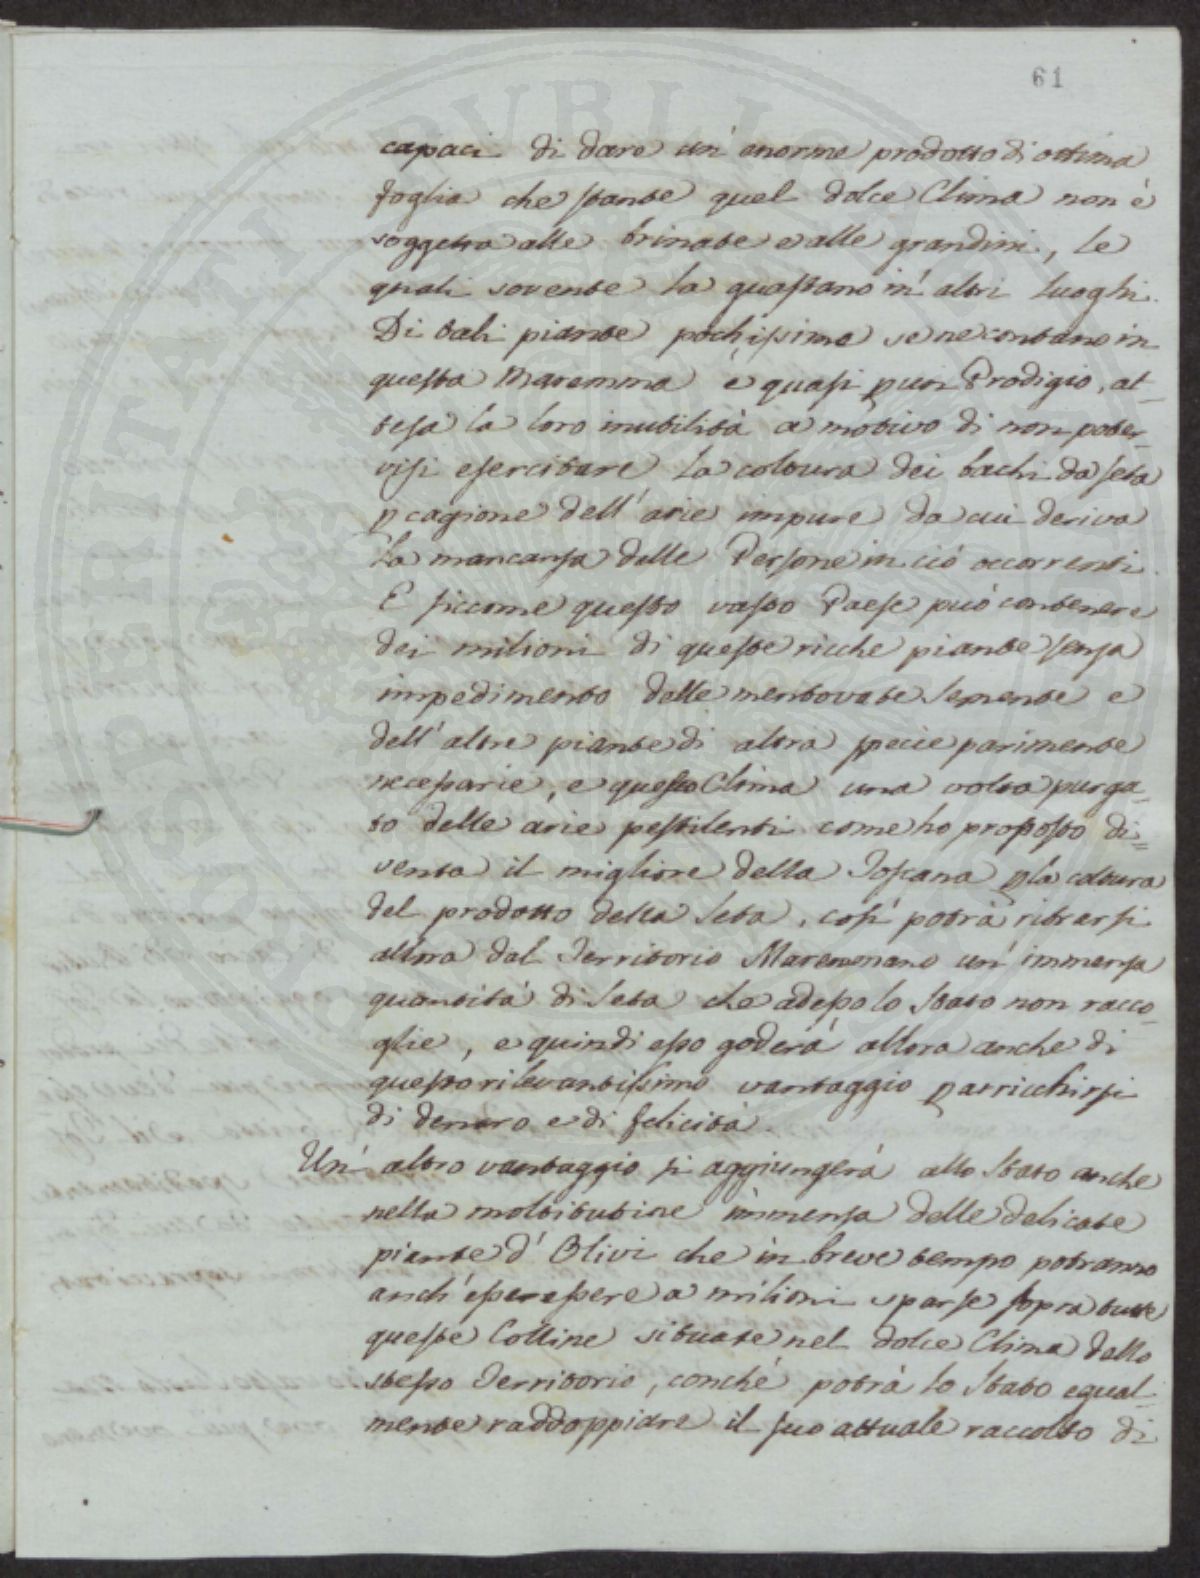 61
capaci di dare un' enorme prodotto di ottima
foglia che stante quel dolce Clima non è
soggetta alle brinate e alle grandini, le
quali sovente la guastano in altri luoghi.
Di tali piante pochissime se ne contano in
questa Maremma e quasi p un Prodigio, at-
tesa la loro inutilità a motivo di non poter-
visi esercitare la coltura dei bachi da seta
p cagione dell' arie impure da cui deriva
la mancansa delle Persone in ciò occorrenti.
E siccome questo vasto Paese può contenere
dei milioni di queste ricche piante senza
impedimento delle mentovate semente e
dell' altre piante di altra specie parimente
necessarie, e questo Clima una volta purga-
to delle arie pestilenti come ho proposto di=
venta il migliore della Toscana p la coltura
del prodotto della seta, così potrà ritrarsi
allora dal Territorio Maremmano un' immensa
quantità di seta che adesso lo Stato non racco-
glie, e quindi esso goderà allora anche di
questo rilevantissimo vantaggio p arricchirsi
di denaro e di felicità.
Un' altro vantaggio si aggiungerà allo Stato anche
nella moltitudine immensa delle delicate
piante d' Olivi che in breve tempo potranno
anch' esse essere a milioni sparse sopra tutte
queste Colline situate nel dolce Clima dello
stesso Territorio, conchè potrà lo Stato egual-
mente raddoppiare il suo attuale raccolto di
PUBLIC